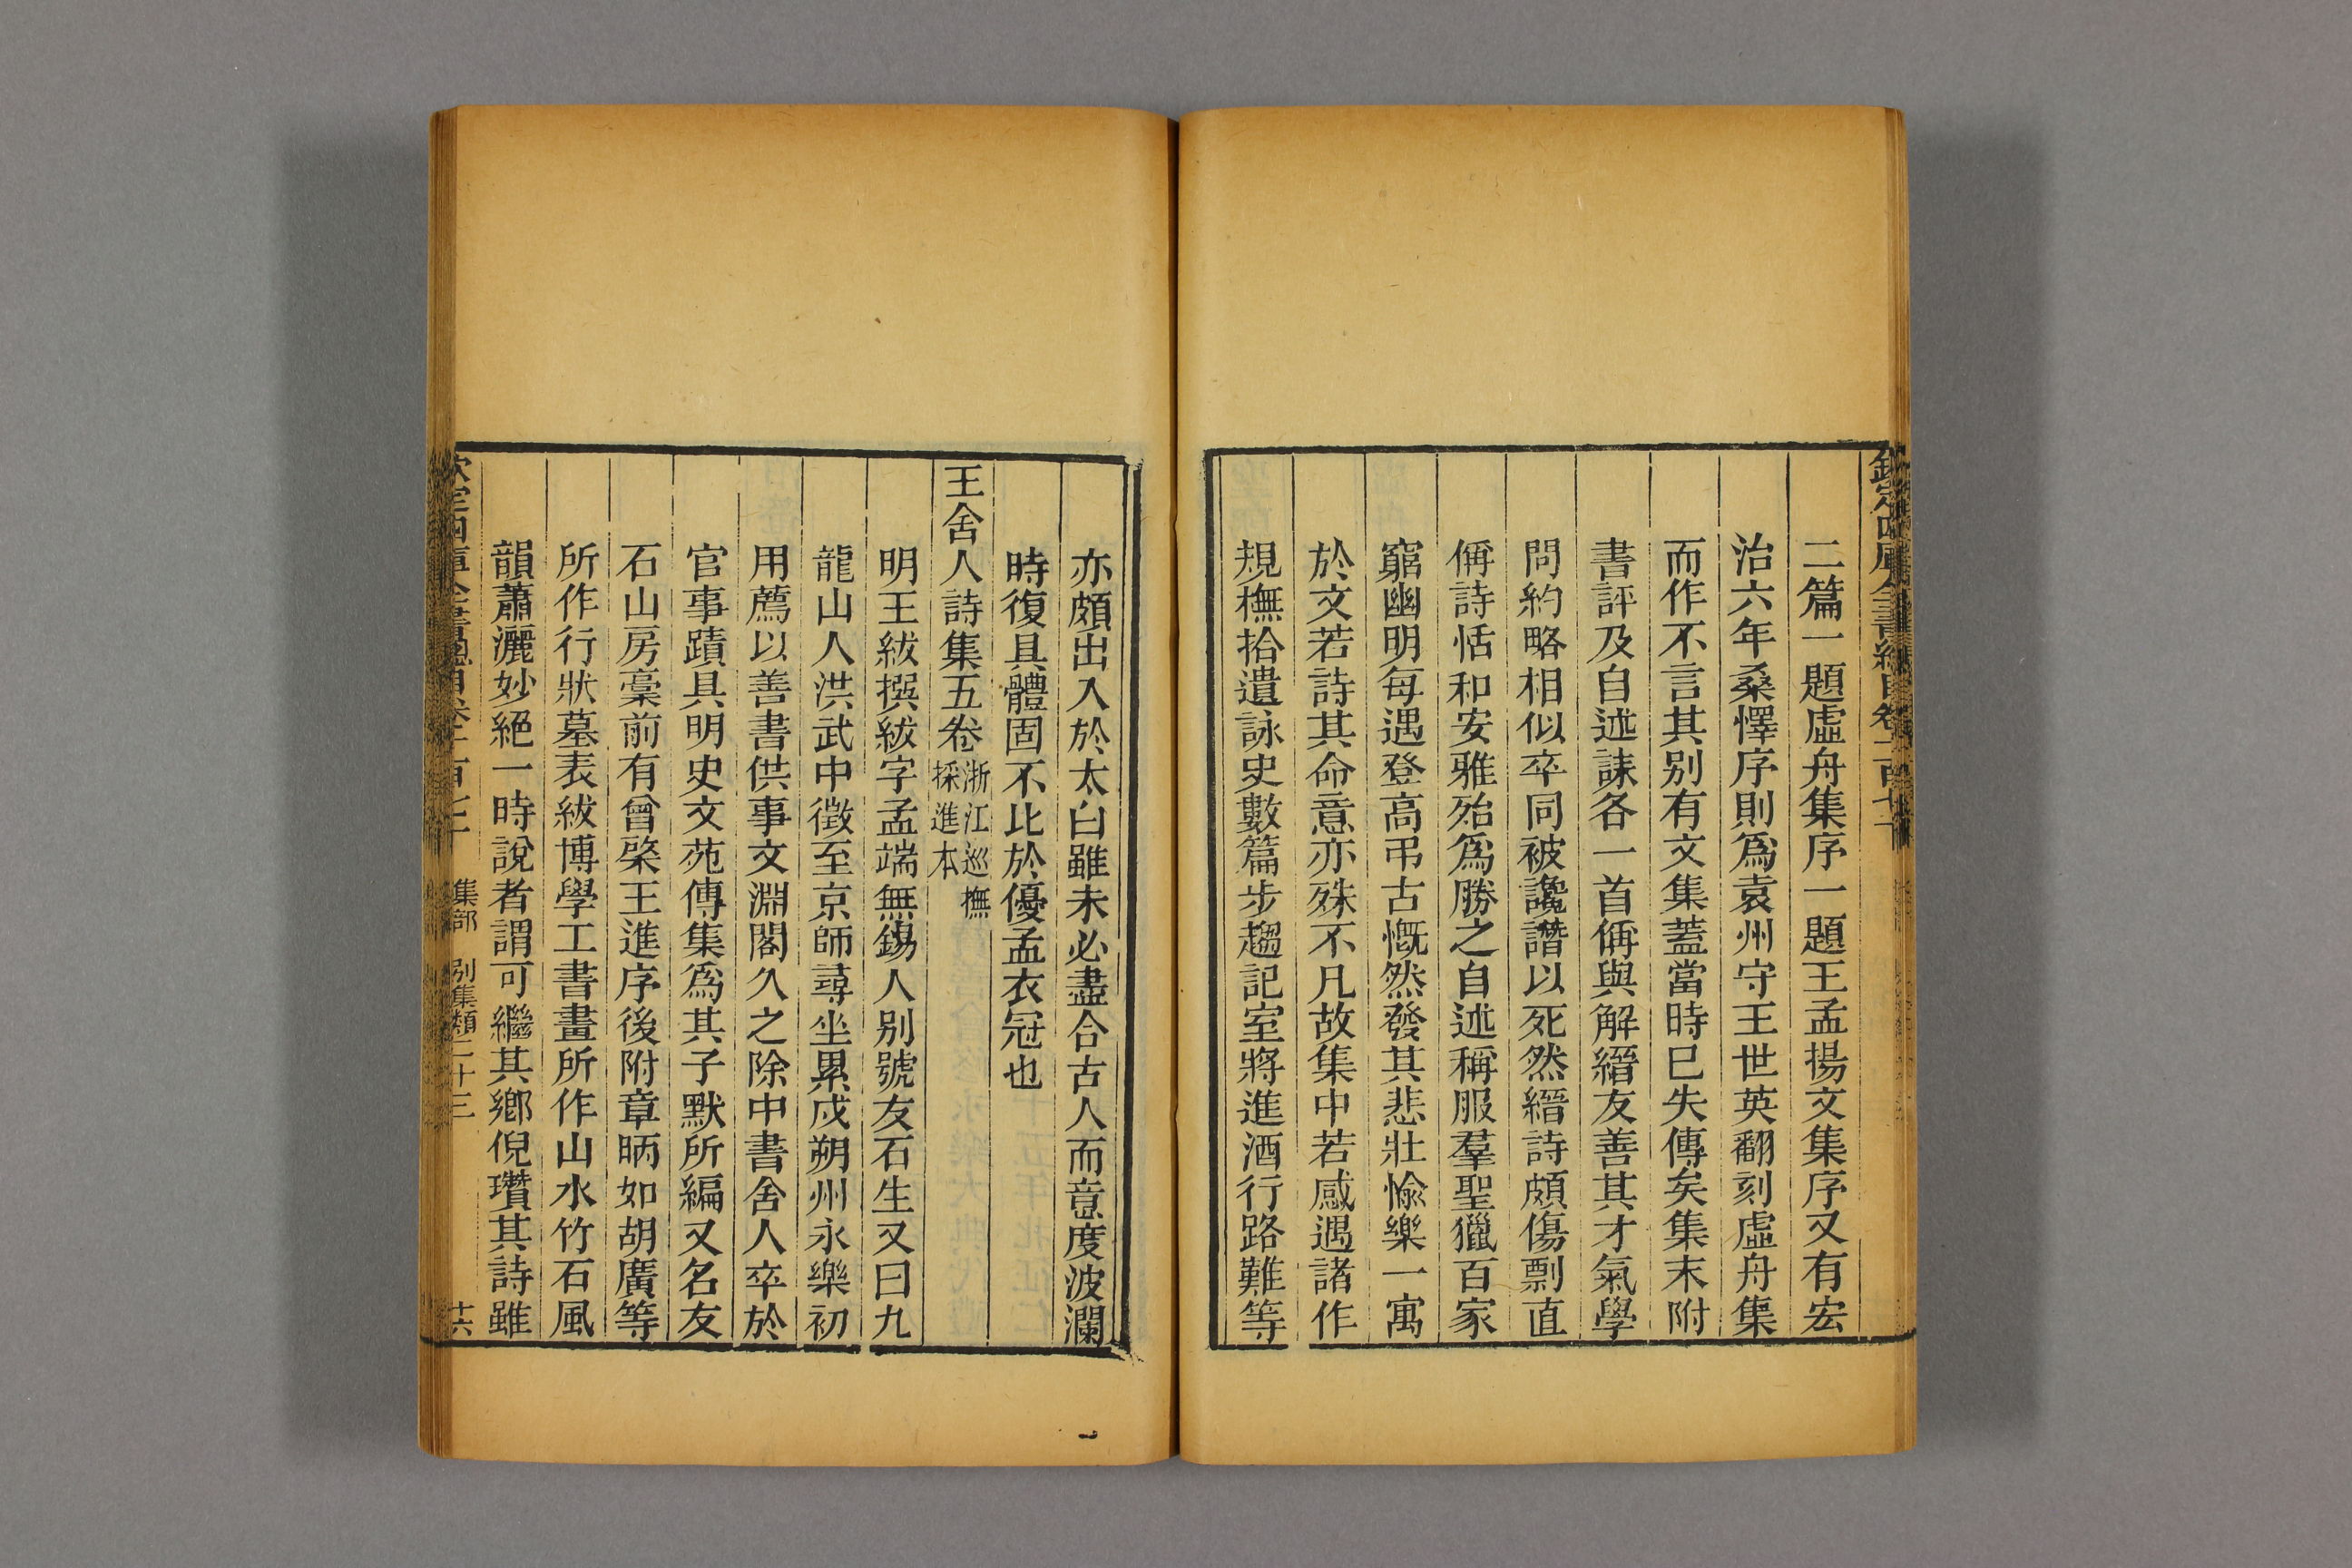 二篇一題虛舟集序一題王孟揚文集序又有宏
治六年桑懌序則爲袁州守王世英翻刻虛舟集
而作不言其别有文集蓋當時已失傳矣集末附
書評及自述誄各一首偁與解縉友善其才氣學
問約略相似卒同被讒譖以死然縉詩頗傷剽直
偁詩恬和安雅殆爲勝之自述稱服羣聖獵百家
窮幽明每遇登高弔古慨然發其悲壯愉樂一寓
於文若詩其命意亦殊不凡故集中若感遇諸作
規橅拾遺詠史數篇步趨記室將進酒行路難等
亦頗出入於太白雖未必盡合古人而意度波瀾
時復具體固不比於優孟衣冠也
王舍人詩集五卷浙江巡撫採進本
明王紱撰紱字孟端無錫人别號友石生又曰九
龍山人洪武中徵至京師尋坐累戍朔州永樂初
用薦以善書供事文淵閣久之除中書舍人卒於
官事蹟具明史文苑傳集爲其子默所編又名友
石山房稾前有曾棨王進序後附章昞如胡廣等
所作行狀墓表紱博學工書畫所作山水竹石風
韻蕭灑妙絕一時說者謂可繼其鄉倪瓚其詩雖
集部 别集類二十三
十六